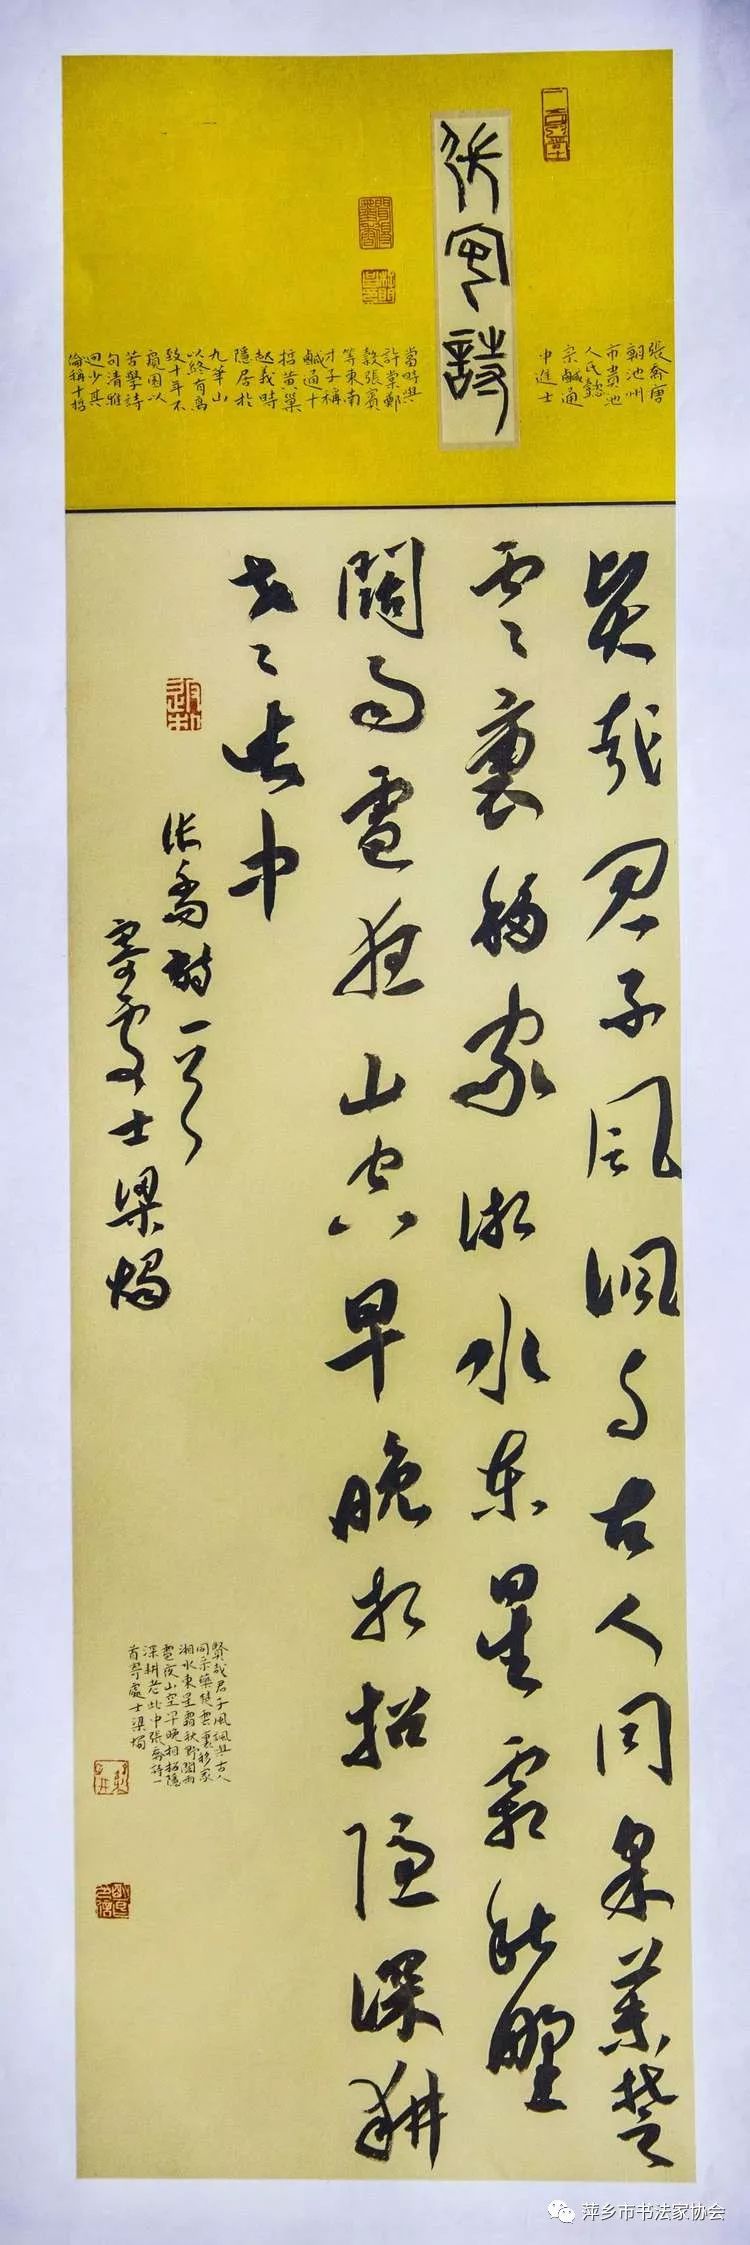 張喬詩
張喬唐
朝池州
市貴池
人氏懿
宗鹹通
中進士
當時與
許棠鄭
穀張賓
等東南
才子稱
鹹通十
哲黃巢
起義時
隱居於
九華山
以終有高
致十年不
窺園以
苦學詩
句清雅
迥少其
倫稱十哲
賢哉君子風諷與古人同采藥楚
雲裏移家湘水東星霜秋野
闊雨雹夜山空早晚相招隱深耕
老此中
張喬詩一首
寄處士梁燭
賢哉君子風諷與古人
同采藥楚雲裏移家
湘水東星霜秋野闊雨
雹夜山空早晚相招隱
深耕老此中張喬詩一
首寄處士梁燭
萍乡市书法家协会